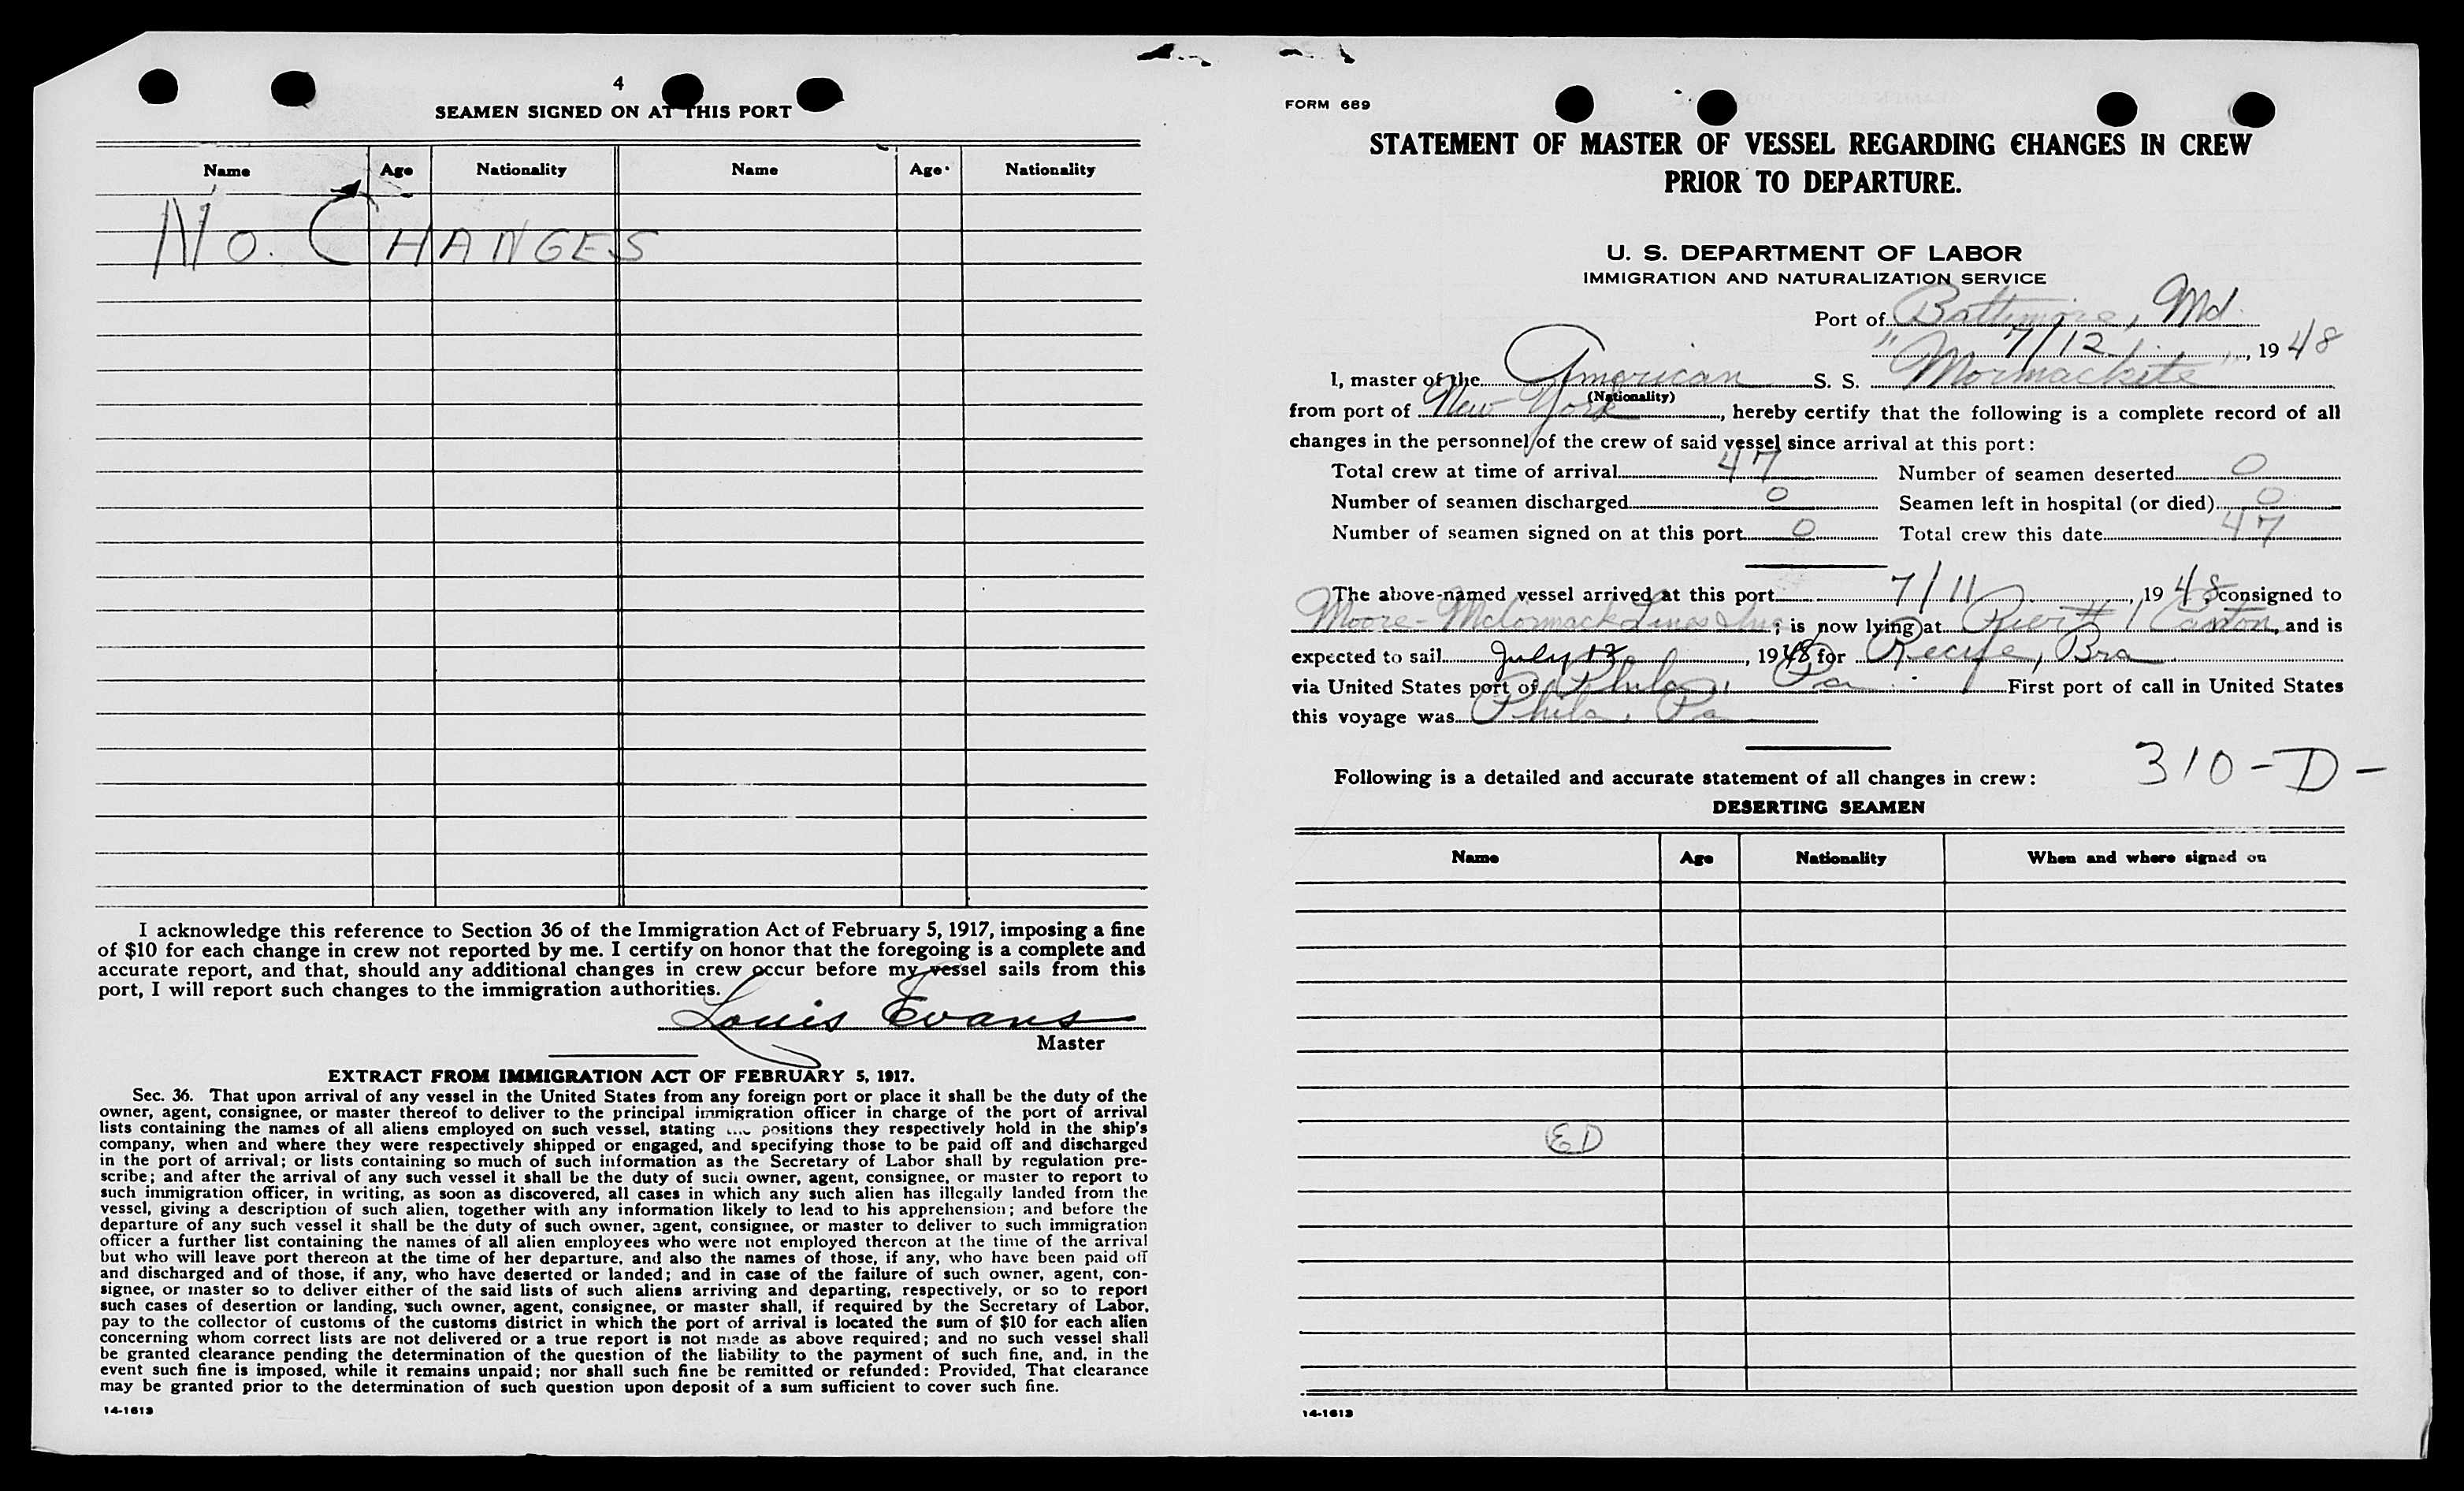 4
SEAMEN SIGNED ON AT THIS PORT
Name Age Nationality Name Age Nationality
No. CHANGES
I acknowledge this reference to Section 36 of the Immigration Act of February 5, 1917, imposing a fine
of $10 for each change in crew not reported by me. I certify on honor that the foregoing is a complete and
accurate report, and that, should any additional changes in crew occur before my vessel sails from this
port, I will report such changes to the immigration authorities.
Louis Evans
Master
EXTRACT FROM IMMIGRATION ACT OF FEBRUARY 5, 1917.
Sec. 36. That upon arrival of any vessel in the United States from any foreign port or place it shall be the duty of the
owner, agent, consignee, or master thereof to deliver to the principal immigration officer in charge of the port of arrival
lists containing the names of all aliens employed on such vessel, stating the positions they respectively hold in the ship's
company, when and where they were respectively shipped or engaged, and specifying those to be paid off and discharged
in the port of arrival; or lists containing so much of such information as the Secretary of Labor shall by regulation pre-
scribe; and after the arrival of any such vessel it shall be the duty of such owner, agent, consignee, or master to report to
such immigration officer, in writing, as soon as discovered, all cases in which any such alien has illegally landed from the
vessel, giving a description of such alien, together with any information likely to lead to his apprehension; and before the
departure of any such vessel it shall be the duty of such owner, agent, consignee, or master to deliver to such immigration
officer a further list containing the names of all alien employees who were not employed thereon at the time of the arrival
but who will leave port thereon at the time of her departure, and also the names of those, if any, who have been paid off
and discharged and of those, if any, who have deserted or landed; and in case of the failure of such owner, agent, con-
signee, or master so to deliver either of the said lists of such aliens arriving and departing, respectively, or so to report
such cases of desertion or landing, such owner, agent, consignee, or master shall, if required by the Secretary of Labor,
pay to the collector of customs of the customs district in which the port of arrival is located the sum of $10 for each alien
concerning whom correct lists are not delivered or a true report is not made as above required; and no such vessel shall
be granted clearance pending the determination of the question of the liability to the payment of such fine, and, in the
event such fine is imposed, while it remains unpaid; nor shall such fine be remitted or refunded: Provided, That clearance
may be granted prior to the determination of such question upon deposit of a sum sufficient to cover such fine.
14-1613
FORM 689
STATEMENT OF MASTER OF VESSEL REGARDING CHANGES IN CREW
PRIOR TO DEPARTURE.
U. S. DEPARTMENT OF LABOR
IMMIGRATION AND NATURALIZATION SERVICE
Port of Baltimore, Md.
7/12, 1948
I, master of the American S. S. "Mormackite"
(Nationality)
from port of New York, hereby certify that the following is a complete record of all
changes in the personnel of the crew of said vessel since arrival at this port:
Total crew at time of arrival 47 Number of seamen deserted 0
Number of seamen discharged 0 Seamen left in hospital (or died) 0
Number of seamen signed on at this port 0 Total crew this date 47
The above-named vessel arrived at this port 7/11, 1948, consigned to
Moore-McCormack Lines Inc; is now lying at Pier # 1 Canton, and is
expected to sail July 12, 1948 for Recife, Bra
via United States port of Phila, Pa. First port of call in United States
this voyage was Phila, Pa
310-D-
Following is a detailed and accurate statement of all changes in crew:
DESERTING SEAMEN
Name Age Nationality When and where signed on
ED
14-1613